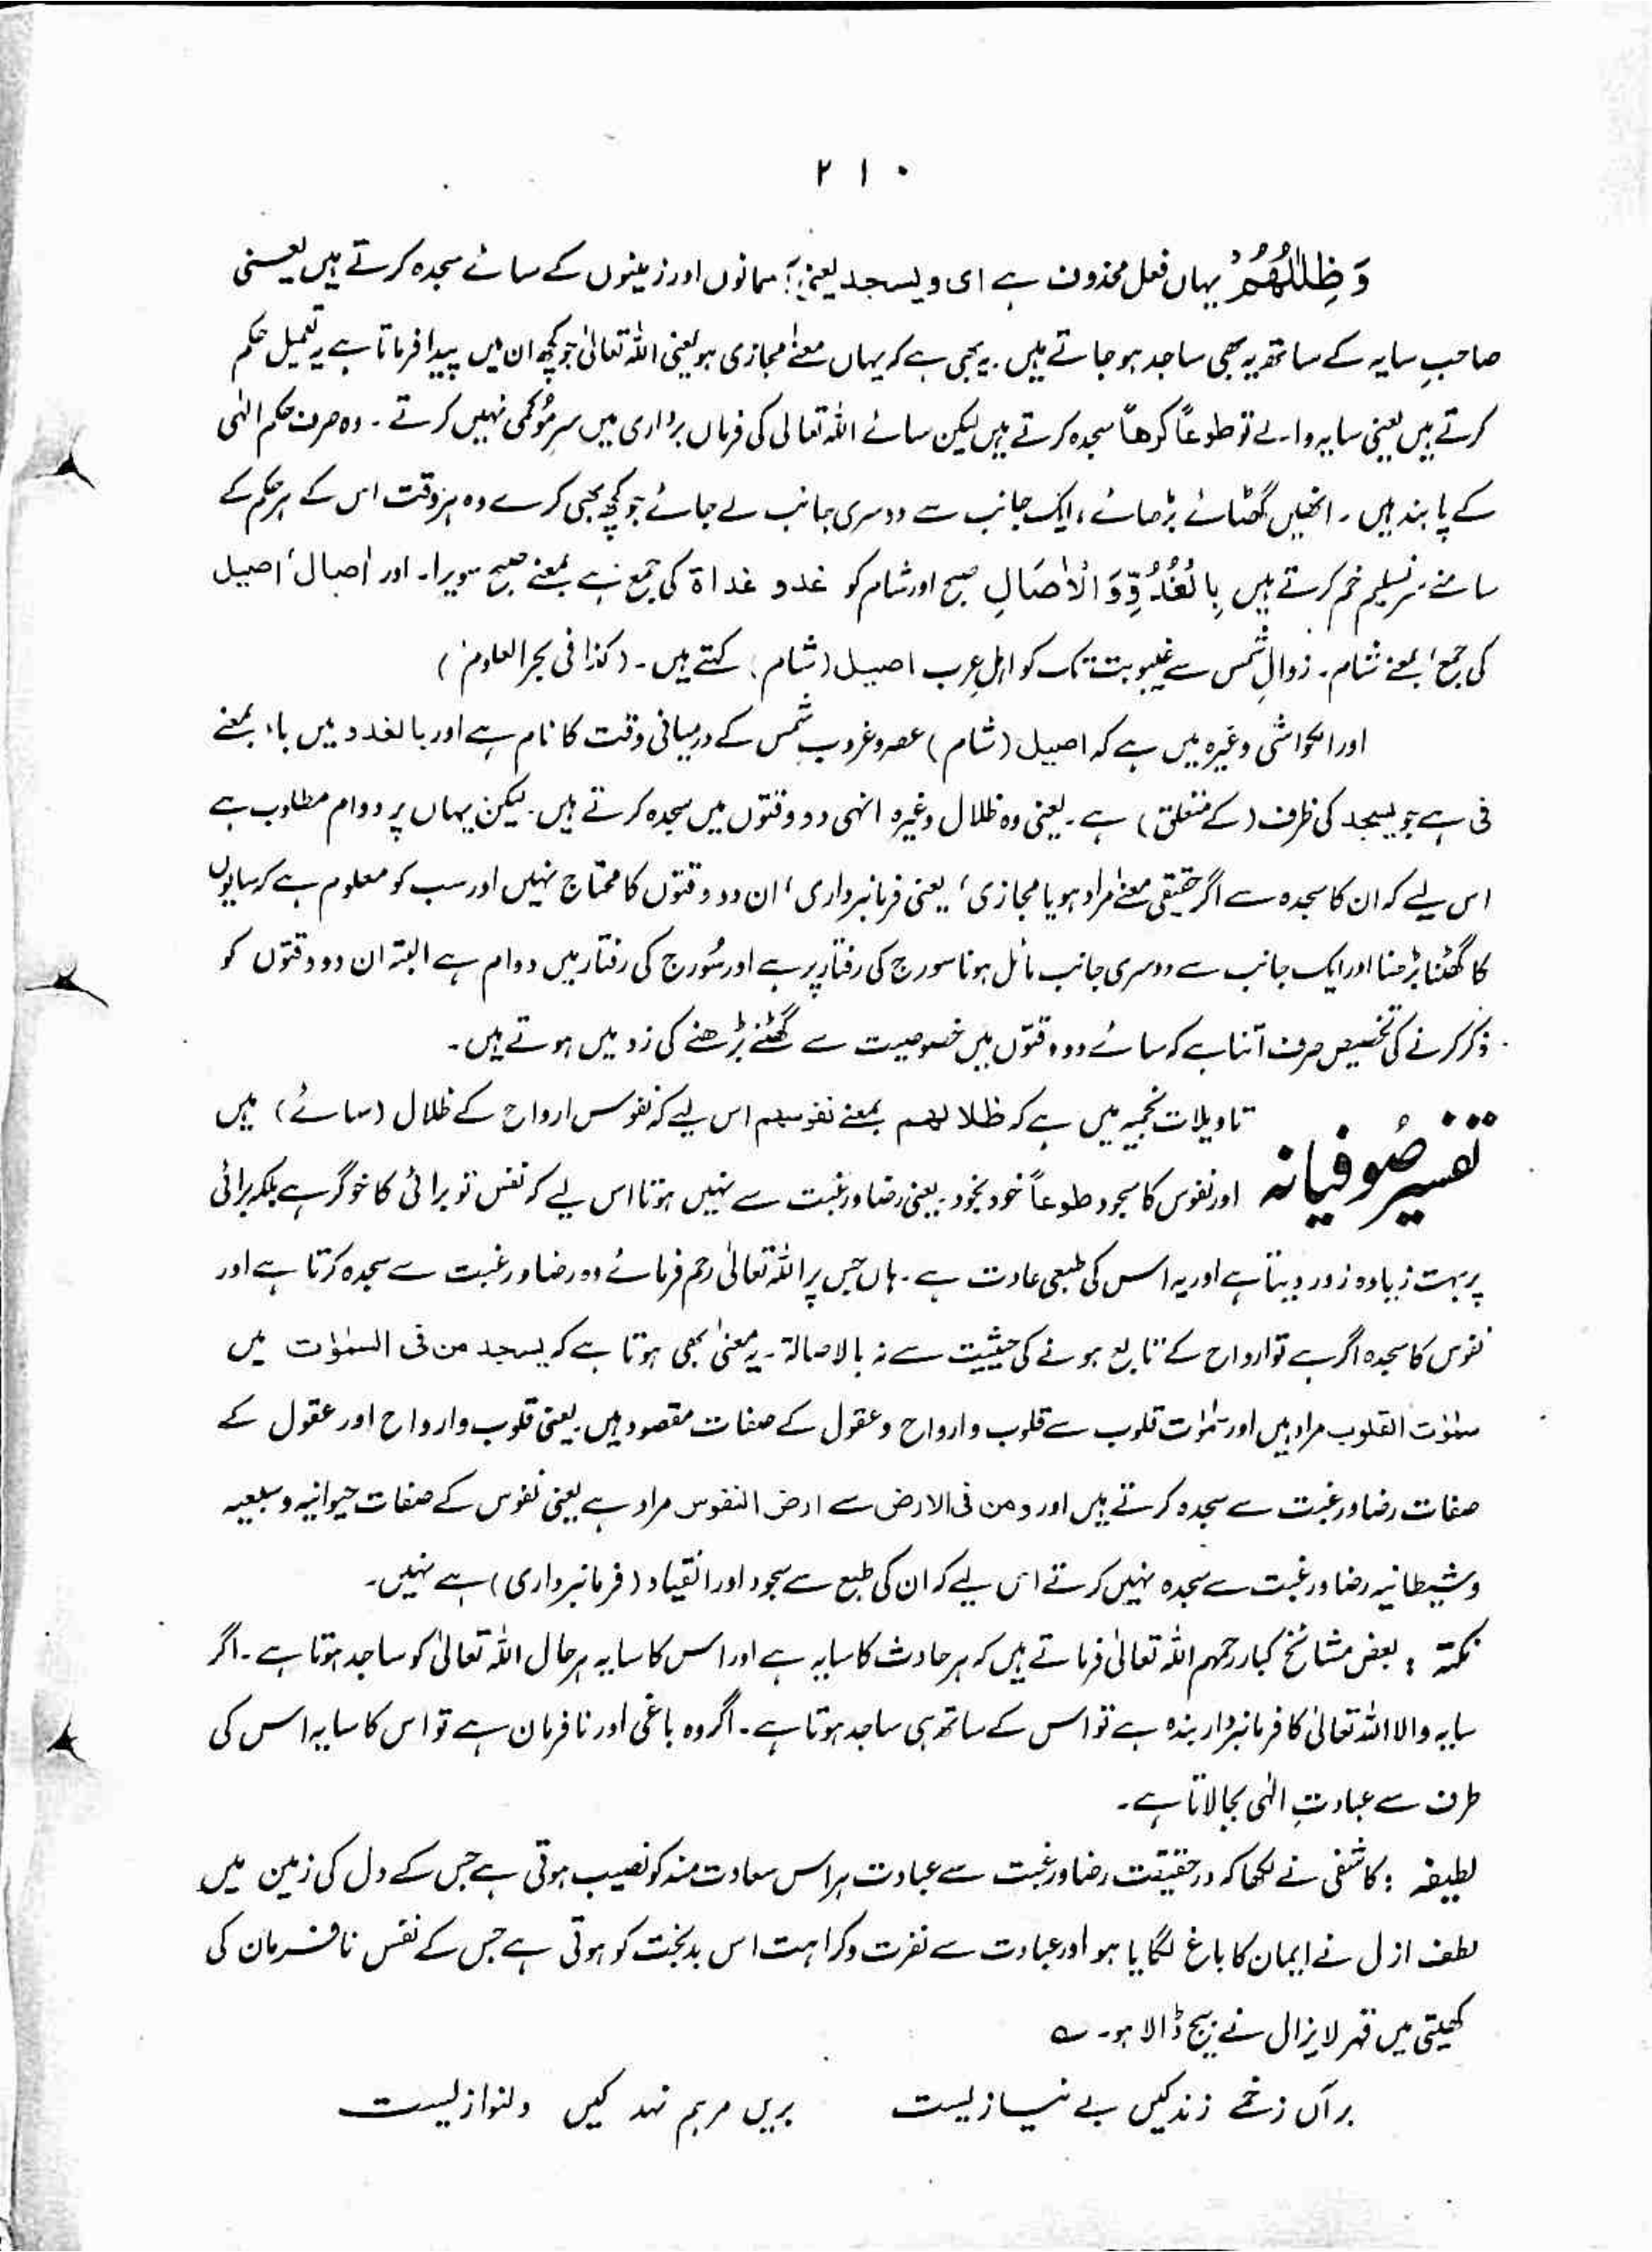 ۲۱۰
وَظِلٰلُهُمْ یہاں فعل محذوف ہے ای ویسجد یعنی آسمانوں اور زمینوں کے سائے سجدہ کرتے ہیں یعنی
صاحبِ سایہ کے ساتھ یہ بھی ساجد ہو جاتے ہیں۔ یہ بھی ہے کہ یہاں معنیٰ مجازی ہو یعنی اللہ تعالیٰ جو کچھ ان میں پیدا فرماتا ہے یہ تعمیل حکم
کرتے ہیں یعنی سایہ والے تو طوعاً کرھاً سجدہ کرتے ہیں لیکن سائے اللہ تعالیٰ کی فرماں برداری میں سرِمُو کمی نہیں کرتے۔ وہ صرف حکم الٰہی
کے پابند ہیں۔ انھیں گھٹائے بڑھائے، ایک جانب سے دوسری جانب لے جائے جو کچھ بھی کرے وہ ہر وقت اس کے ہر حکم کے
سامنے سر تسلیم خم کرتے ہیں بِالْغُدُوِّ وَالْاٰصَالِ صبح اور شام کو غدو غداۃ کی جمع ہے بمعنے صبح سویرا۔ اور اٰصال، اصیل
کی جمع، بمعنے شام۔ زوالِ شمس سے غیبوبت تک کو اہلِ عرب اصیل (شام) کہتے ہیں۔ (کذا فی بحر العلوم)
اور الحواشی وغیرہ میں ہے کہ اصیل (شام) عصر و غروبِ شمس کے درمیانی وقت کا نام ہے اور بالغدو میں باء بمعنے
فی ہے جو یسجد کی ظرف (کے متعلق) ہے۔ یعنی وہ ظلال وغیرہ انہی دو وقتوں میں سجدہ کرتے ہیں۔ لیکن یہاں پر دوام مطلوب ہے
اس لیے کہ ان کا سجدہ سے اگر حقیقی معنےٰ مراد ہو یا مجازی، یعنی فرمانبرداری، ان دو وقتوں کا محتاج نہیں اور سب کو معلوم ہے کہ سایوں
کا گھٹنا بڑھنا اور ایک جانب سے دوسری جانب مائل ہونا سورج کی رفتار پر ہے اور سُورج کی رفتار میں دوام ہے البتہ ان دو وقتوں کو
ذکر کرنے کی تخصیص صرف اتنا ہے کہ سائے دو وقتوں میں خصوصیت سے گھٹنے بڑھنے کی زد میں ہوتے ہیں۔
تفسیر صُوفیانہ تاویلات نجمیہ میں ہے کہ ظلالهم بمعنے نفوسهم اس لیے کہ نفوس ارواح کے ظلال (سائے) ہیں
اور نفوس کا سجود طوعاً خود بخود۔ یعنی رضا و رغبت سے نہیں ہوتا اس لیے کہ نفس تو برائی کا خوگر ہے بلکہ برائی
پر بہت زیادہ زور دیتا ہے اور یہ اس کی طبعی عادت ہے۔ ہاں جس پر اللہ تعالیٰ رحم فرمائے وہ رضا و رغبت سے سجدہ کرتا ہے اور
نفوس کا سجدہ اگر ہے تو ارواح کے تابع ہونے کی حیثیت سے نہ بالاصالۃ۔ یہ معنیٰ بھی ہوتا ہے کہ یسجد من فی السمٰوٰت میں
سمٰوٰت القلوب مراد ہیں اور سمٰوٰت قلوب سے قلوب و ارواح و عقول کے صفات مقصود ہیں۔ یعنی قلوب و ارواح اور عقول کے
صفات رضا و رغبت سے سجدہ کرتے ہیں اور ومن فی الارض سے ارض النفوس مراد ہے یعنی نفوس کے صفات حیوانیہ و سبعیہ
و شیطانیہ رضا و رغبت سے سجدہ نہیں کرتے اس لیے کہ ان کی طبع سے سجود اور انقیاد (فرمانبرداری) ہے نہیں۔
نکتہ : بعض مشائخ کبار رحمہم اللہ تعالیٰ فرماتے ہیں کہ ہر حادث کا سایہ ہے اور اس کا سایہ ہر حال اللہ تعالیٰ کو ساجد ہوتا ہے۔ اگر
سایہ والا اللہ تعالیٰ کا فرمانبردار بندہ ہے تو اس کے ساتھ ہی ساجد ہوتا ہے۔ اگر وہ باغی اور نافرمان ہے تو اس کا سایہ اس کی
طرف سے عبادتِ الٰہی بجا لاتا ہے۔
لطیفہ : کاشفی نے لکھا کہ در حقیقت رضا و رغبت سے عبادت ہر اس سعادت مند کو نصیب ہوتی ہے جس کے دل کی زمین میں
لطف ازل نے ایمان کا باغ لگایا ہو اور عبادت سے نفرت و کراہت اس بدبخت کو ہوتی ہے جس کے نفس نافرمان کی
کھیتی میں قہر لا یزال نے بیج ڈالا ہو۔ ؎
برآں زخمے زند کیں بے نیازیست بریں مرہم نہد کیں دلنوازیست